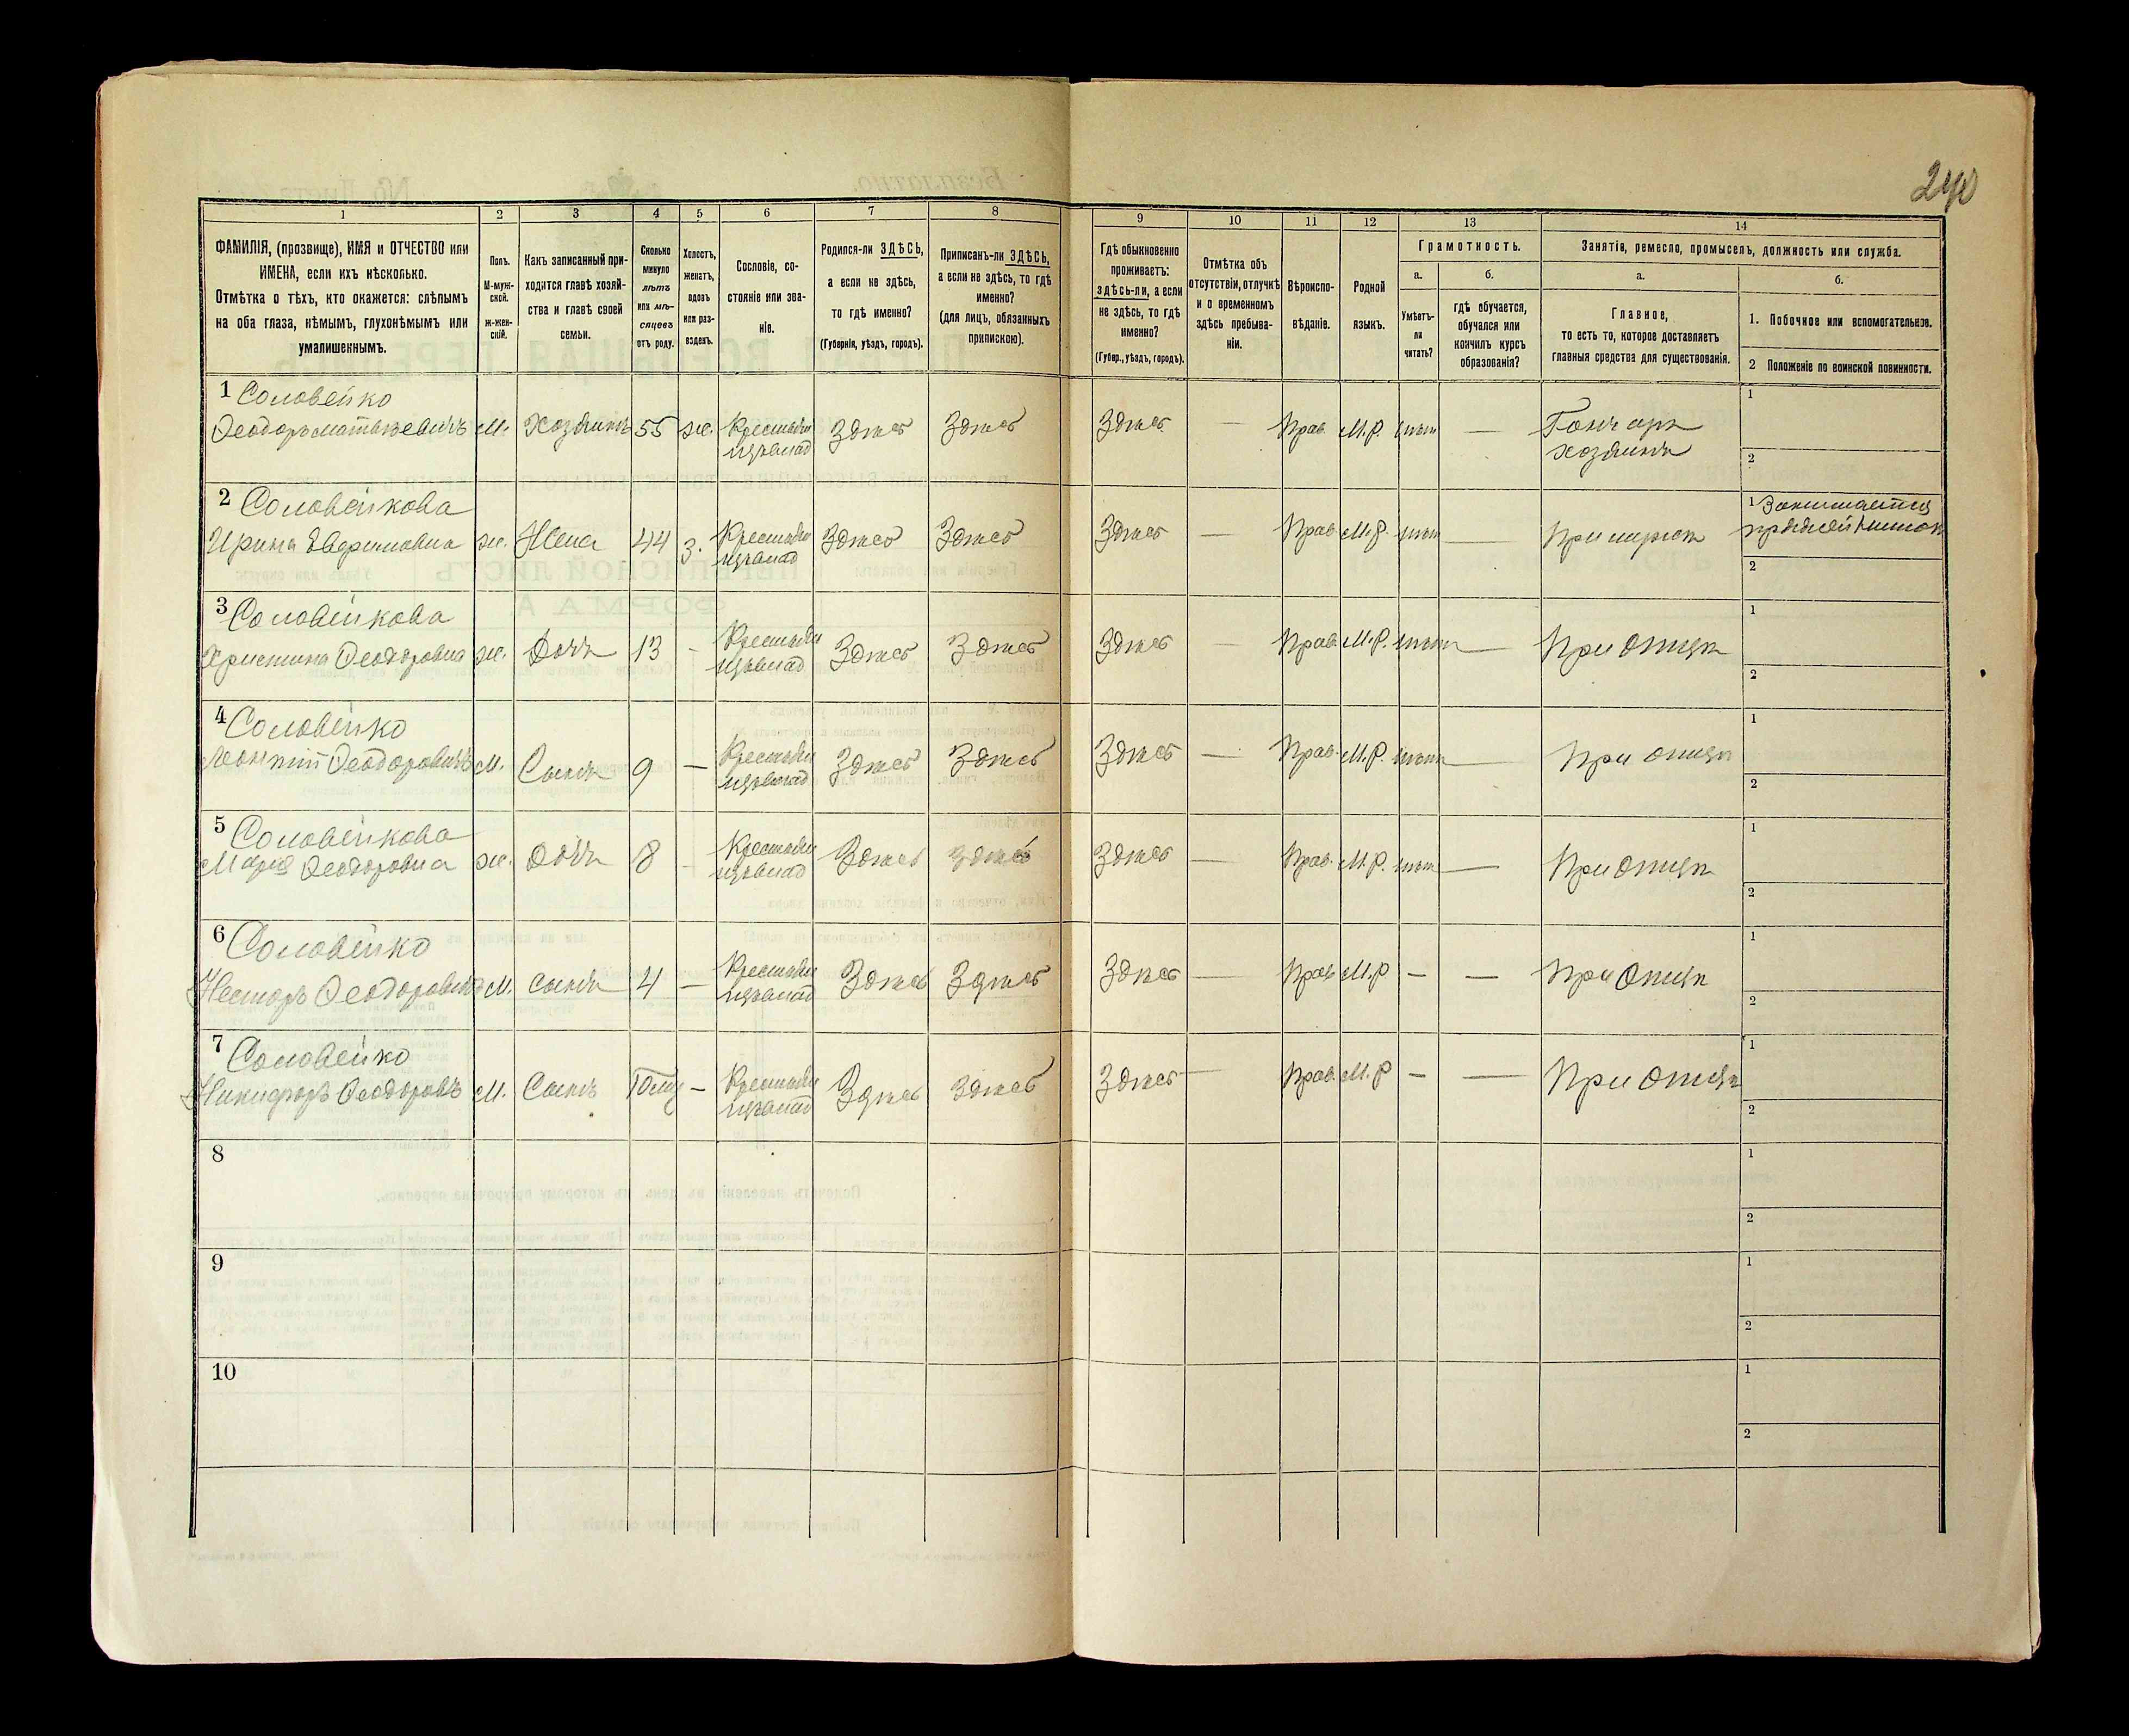 240
1 2 3 4 5 6 7 8 9 10 11 12 13 14
ФАМИЛІЯ, (прозвище), ИМЯ и ОТЧЕСТВО или
ИМЕНА, если ихъ нѣсколько.
Отмѣтка о тѣхъ, кто окажется: слѣпымъ
на оба глаза, нѣмымъ, глухонѣмымъ или
умалишеннымъ.
Полъ.
М-муж-
ской.
ж-жен-
скій.
Какъ записанный при-
ходится главѣ хозяй-
ства и главѣ своей
семьи.
Сколько
минуло
лѣтъ
или мѣ-
сяцевъ
отъ роду.
Холостъ,
женатъ,
вдовъ
или раз-
веденъ.
Сословіе, со-
стояніе или зва-
ніе.
Родился-ли ЗДѢСЬ,
а если не здѣсь,
то гдѣ именно?
(Губернія, уѣздъ, городъ).
Приписанъ-ли ЗДѢСЬ,
а если не здѣсь, то гдѣ
именно?
(для лицъ, обязанныхъ
припискою).
Гдѣ обыкновенно
проживаетъ:
здѣсь-ли, а если
не здѣсь, то гдѣ
именно?
(Губер., уѣздъ, городъ).
Отмѣтка объ
отсутствіи, отлучкѣ
и о временномъ
здѣсь пребыва-
ніи.
Вѣроиспо-
вѣданіе.
Родной
языкъ.
Грамотность.
а.
Умѣетъ-
ли
читать?
б.
гдѣ обучается,
обучался или
кончилъ курсъ
образованія?
Занятіе, ремесло, промыселъ, должность или служба.
а.
Главное,
то есть то, которое доставляетъ
главныя средства для существованія.
б.
1. Побочное или вспомогательное.
2 Положеніе по воинской повинности.
1 Соловейко 1
Феодоръ Матвѣевичъ М. Хозяинъ 55 ж. Крестьян Здѣсь Здѣсь Здѣсь — Прав. М.Р. нѣтъ — Гончаръ
хозяинъ
2
2 Соловейкова 1 Занимается
Ирина Евфимовна ж. Жена 44 з. Крестьян Здѣсь Здѣсь Здѣсь — Прав М.Р. нѣтъ — При мужѣ
2
3 Соловейкова 1
Христина Феодоровна ж. Дочь 13 - Крестьян Здѣсь Здѣсь Здѣсь — Прав М.Р. нѣтъ — При отцѣ
2
4 Соловейко 1
Леонтий Феодоровичъ М. Сынъ 9 — Крестьян Здѣсь Здѣсь Здѣсь — Прав. М.Р. нѣтъ — При отцѣ
2
5 Соловейкова 1
Мария Феодоровна ж. Дочь 8 - Крестьян Здѣсь Здѣсь Здѣсь — Прав. М.Р. нѣтъ — При отцѣ
2
6 Соловейко 1
Несторъ Феодоровичъ М. сынъ 4 — Крестьян Здѣсь Здѣсь Здѣсь — Прав М.Р — — При отцѣ
2
7 Соловейко 1
Никифоръ Феодоровъ М. Сынъ — Крестьян Здѣсь Здѣсь Здѣсь — Прав. М.Р — — При отцѣ
2
8 1
2
9 1
2
10 1
2